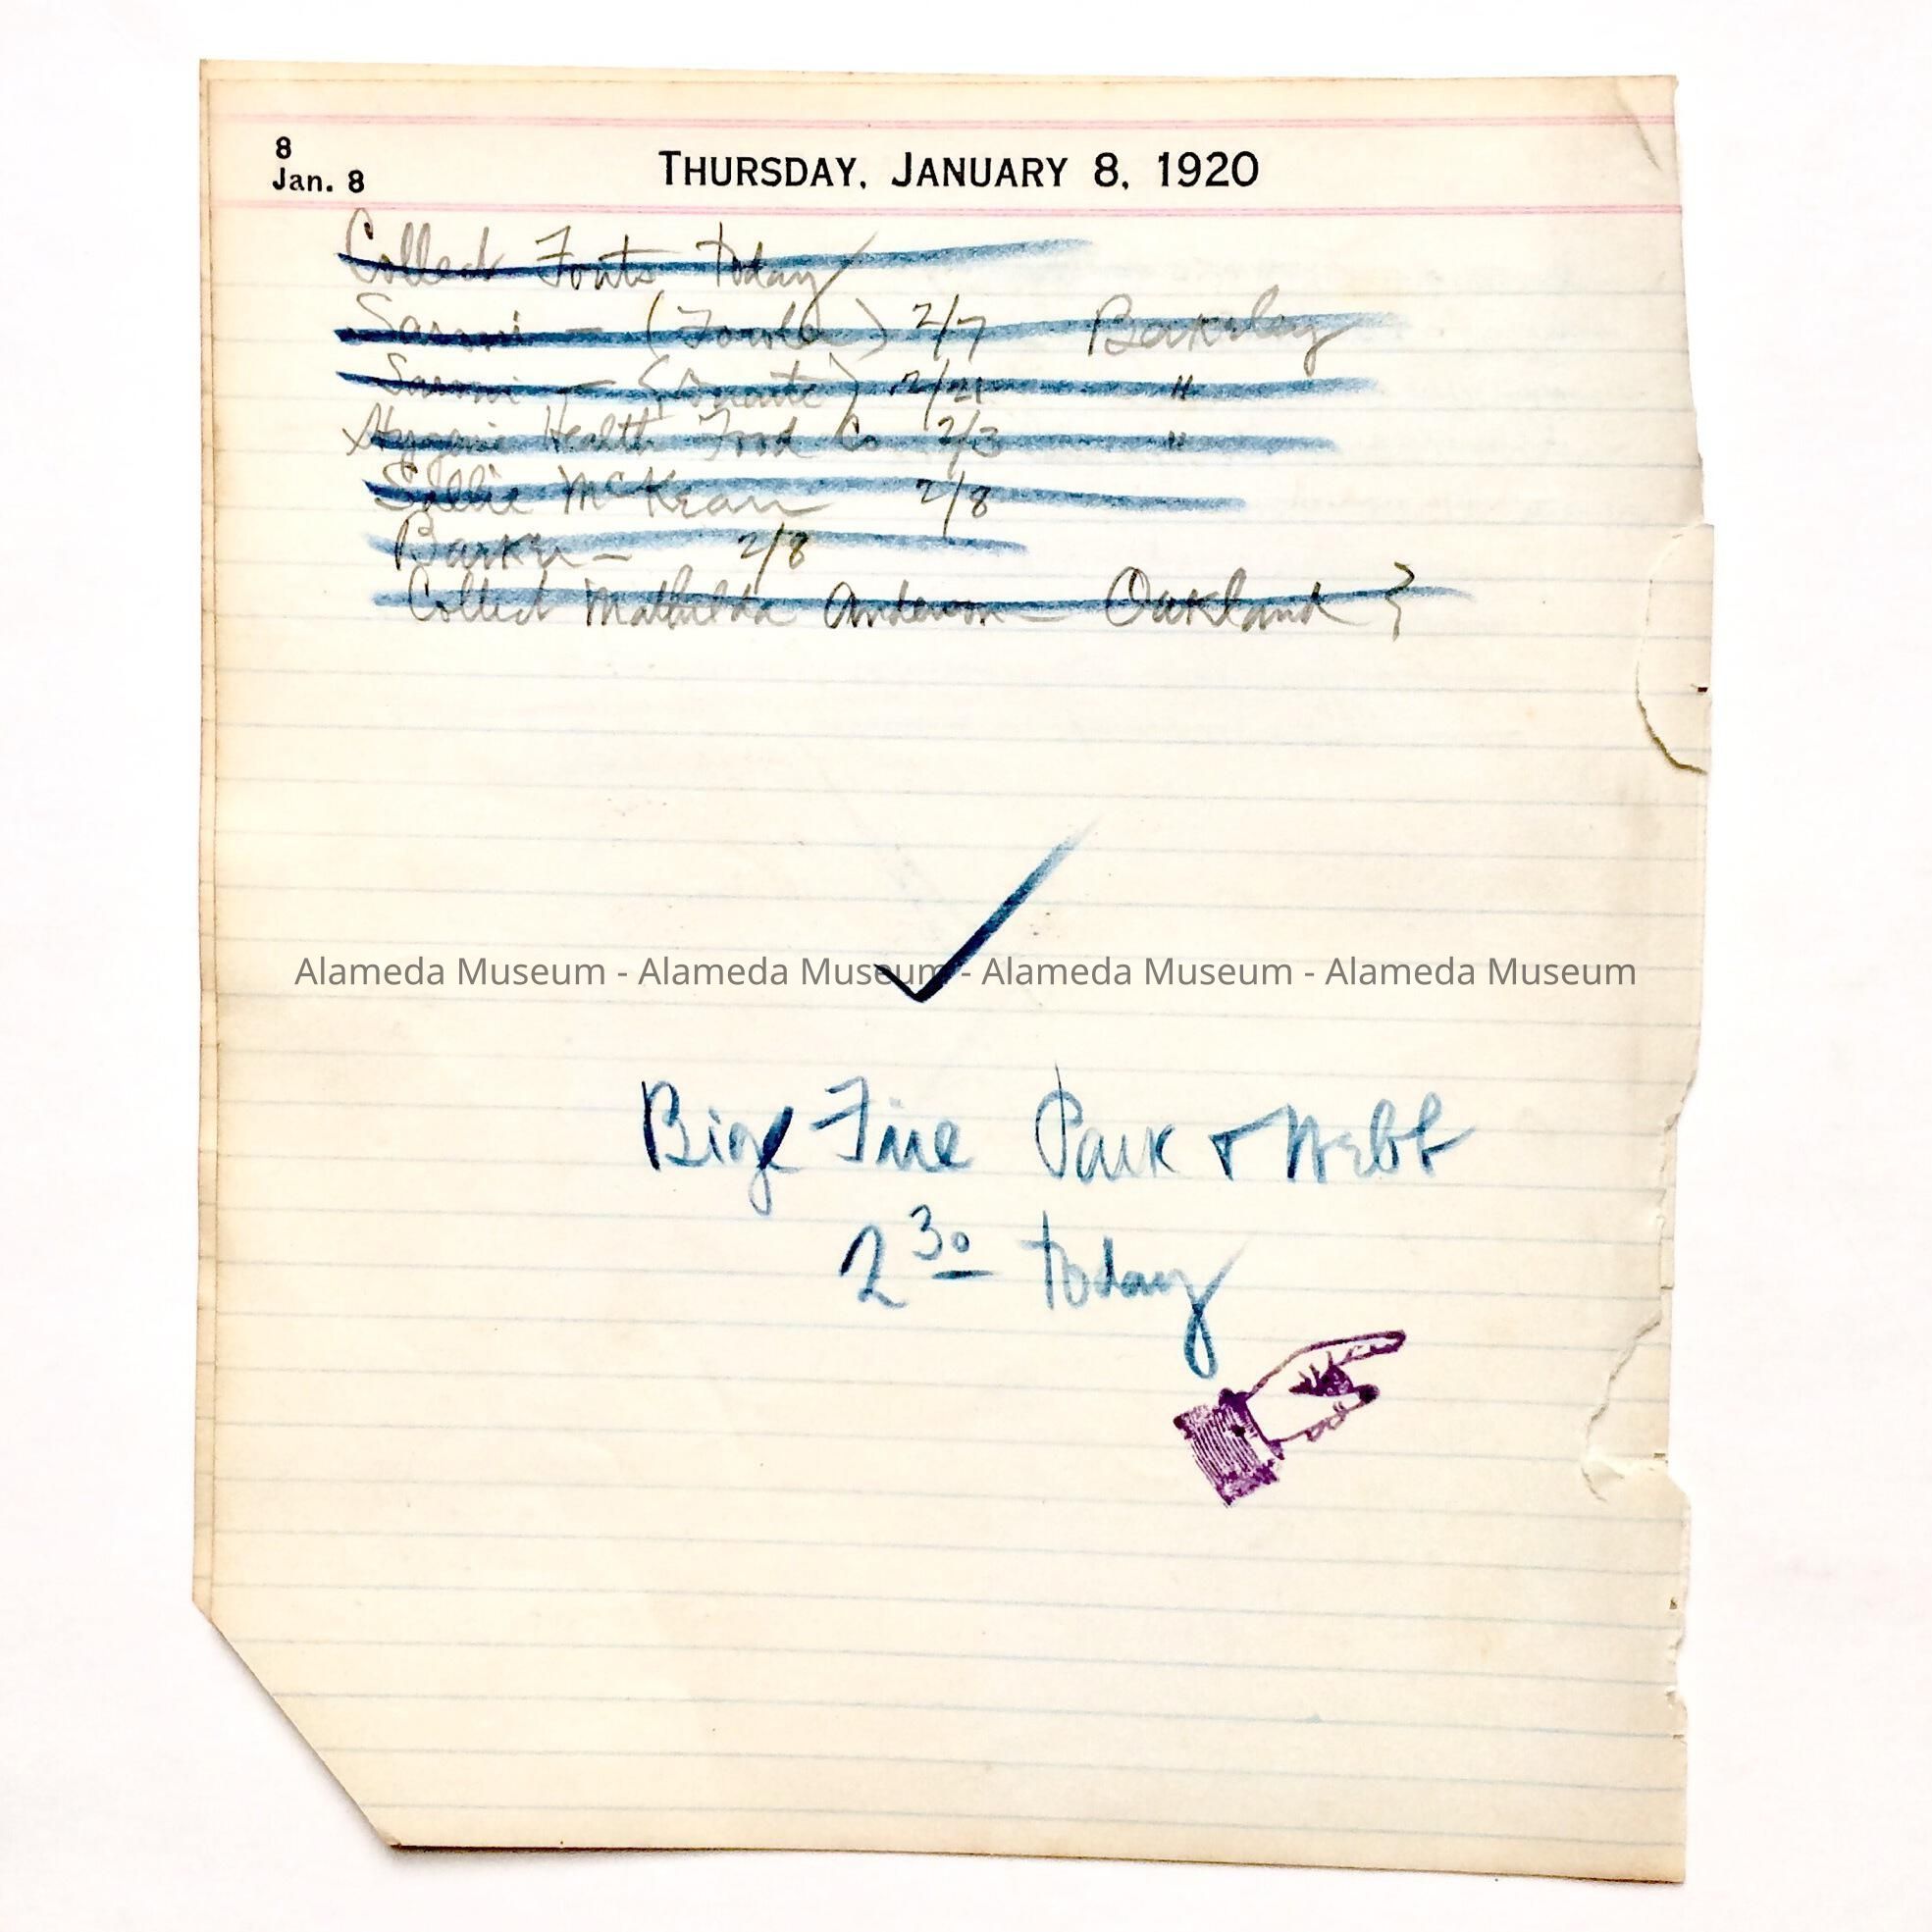 8
Jan. 8
THURSDAY, JANUARY 8, 1920
Collect Fonts today
Saroni — ( ) 2/7 Berkeley
Saroni — ( ) 2/21 "
Hygenic Health Food Co 2/3 "
Sallie McKean 2/8
Barker — 2/8
Collect Mathilda Anderson — Oakland }
Alameda Museum - Alameda Museum - Alameda Museum - Alameda Museum
Big Fire Park & Webb
2 30 today